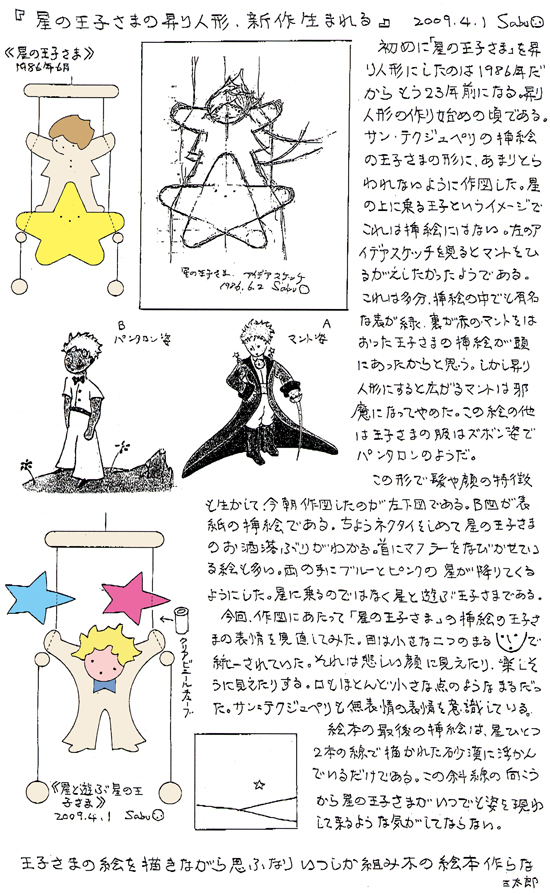 『星の王子さまの昇り人形、新作生まれる』 2009.4.1 Sabu
《星の王子さま》
1986年6月
星の王子さま アイデアスケッチ
1986.6.2 Sabu
初めに「星の王子さま」を昇
り人形にしたのは1986年だ
からもう23年前になる。昇り
人形の作り始めの頃である。
サン・テクジュペリの挿絵
の王子さまの形に、あまりとら
われないように作図した。星
の上に乗る王子というイメージで
これは挿絵にはない。左のア
イデアスケッチを見るとマントをひ
るがえしたかったようである。
これは多分、挿絵の中でも有名
な表が緑、裏が赤のマントをは
おった王子さまの挿絵が頭
にあったからと思う。しかし昇り
人形にすると広がるマントは邪
魔になってやめた。この絵の他
は王子さまの服はズボン姿で
パンタロンのようだ。
B
パンタロン姿
A
マント姿
この形で髪や顔の特徴
も生かして、今朝作図したのが左下図である。B図が表
紙の挿絵である。ちょうネクタイをしめて星の王子さま
のお洒落ぶりがわかる。首にマフラーをなびかせてい
る絵も多い。両の手にブルーとピンクの星が降りてくる
ようにした。星に乗るのではなく星と遊ぶ王子さまである。
今回、作図にあたって「星の王子さま」の挿絵の王子さ
まの表情を見直してみた。目は小さな二つのまるで
統一されていた。それは悲しい顔に見えたり、楽しそ
うに見えたりする。口もほとんど小さな点のようなまるだっ
た。サン=テクジュペリも無表情の表情を意識している。
絵本の最後の挿絵は、星ひとつ
2本の線で描かれた砂漠に浮かん
でいるだけである。この斜線の向こう
から星の王子さまがいつでも姿を現わ
して来るような気がしてならない。
クリアビニールチューブ
《星と遊ぶ星の王
子さま》
2009.4.1 Sabu
王子さまの絵を描きながら思ふなり いつしか組み木の絵本作らな
三太郎